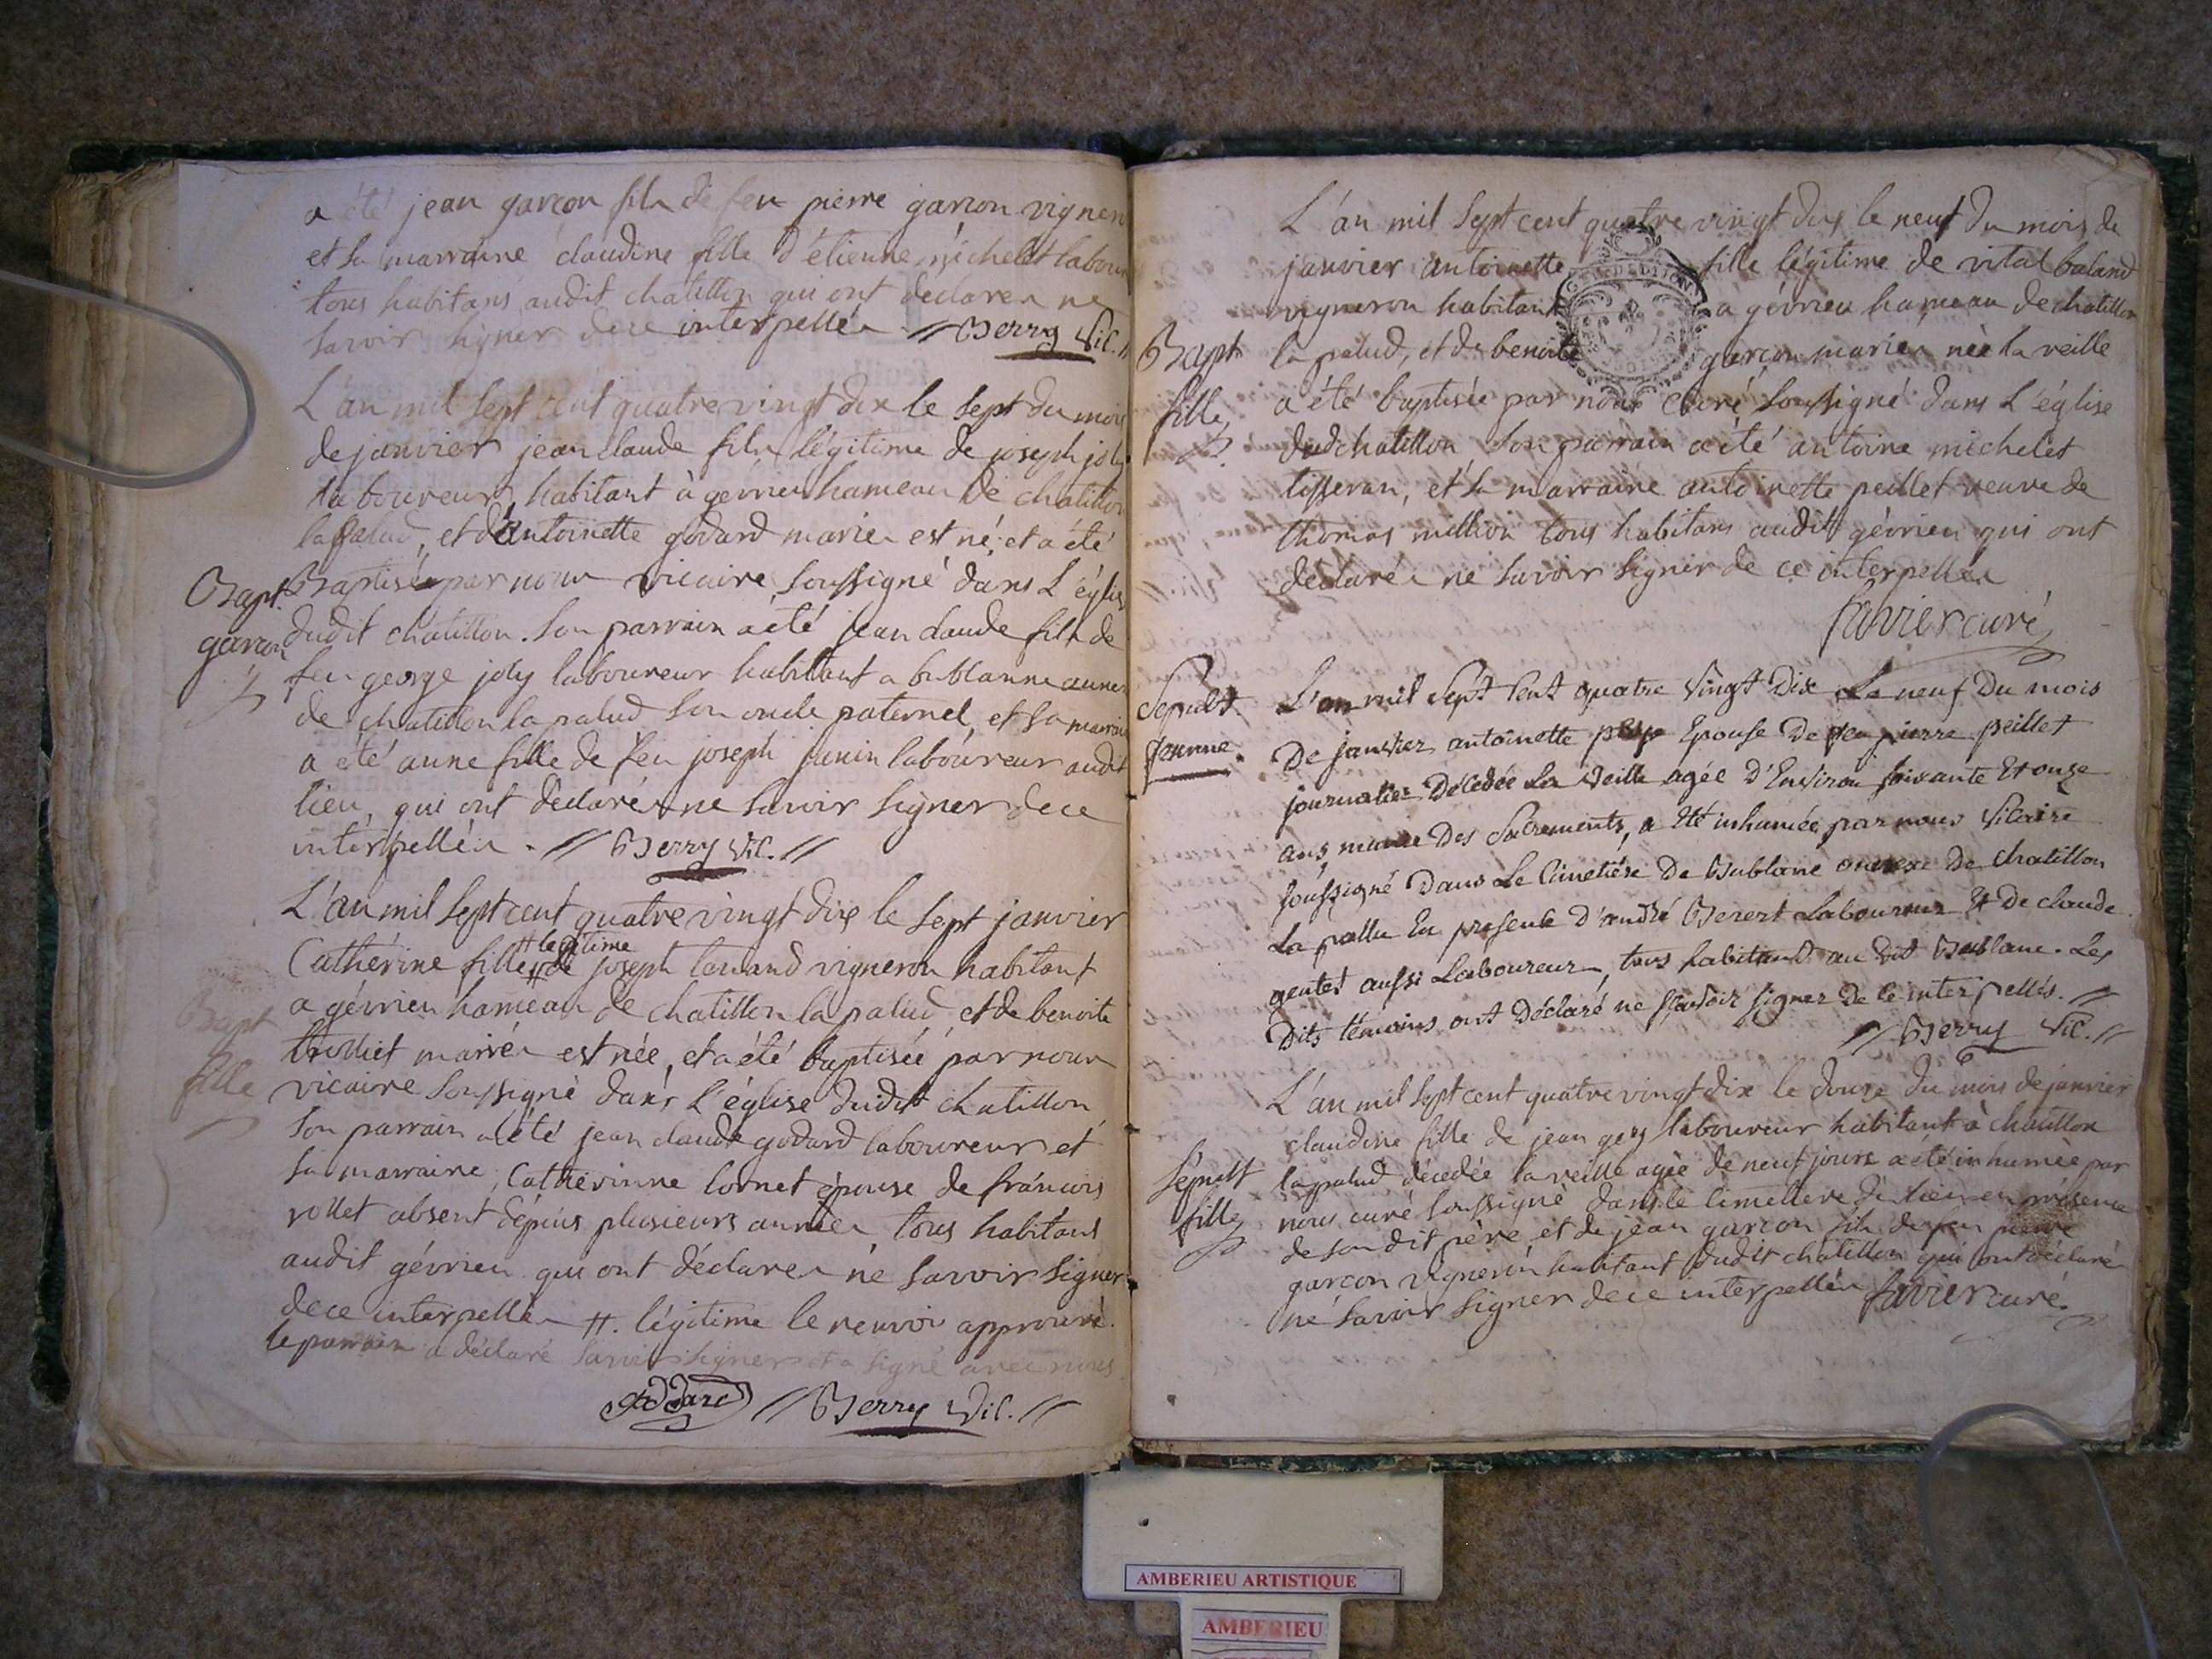 a été jean garçon fils de feu pierre garçon vigneron
et sa marraine claudine fille d'étienne michelet labour
tous habitans audit chatillon qui ont declarés ne
savoir signer de ce interpellés // Berry Vic. //
L'an mil sept cent quatre vingt dix le sept du mois
de janvier jean claude fils légitime de joseph joly
laboureur habitant à gévrieu hameau de chatillon
la palud, et d'antoinette godard mariés est né, et a été
Bapt. garçon
Baptisé par nous vicaire soussigné dans L'église
dudit chatillon. son parrain a été jean claude fils de
feu george joly laboureur habittant a bublanne annexe
de chatillon la palud son oncle paternel, et sa marraine
a été anne fille de feu joseph janin laboureur audit
lieu, qui ont déclarés ne savoir signer de ce
interpellés. // Berry vic. //
L'an mil sept cent quatre vingt dix le sept janvier
Cathérine fille # légitime de joseph vigneron habitant
a gévrieu hameau de chatillon la palud, et de benoite
Bapt fille
trolliet mariés est née, et a été baptisée par nous
vicaire soussigné dans L'église dudit chatillon
son parrain a été jean claude godard laboureur et
sa marraine, Cathérinne lornet épouse de françois
rollet absent dépuis plusieurs années tous habitans
audit gévrieu qui ont déclarés ne savoir signer
de ce interpellés #. légitime le renvoi approuvé.
le parrain a déclaré savoir signer et a signé avec nous
Goddard // Berry Vic. //
L'an mil sept cent quatre vingt dix le neuf du mois de
janvier antoinette fille légitime de vital baland
vigneron habitant a gévrieu hameau de chatillon
Bapt fille
la palud, et de benoite garçon mariés née la veille
a été baptisée par nous Curé soussigné dans L'église
dud chatillon son parrain a été antoine michelet
tisseran, et sa marraine antoinette peillet veuve de
thomas million tous habitans audit gévrieu qui ont
déclarés ne savoir signer de ce interpellés
favier curé
Sepult. femme.
L'an mil Sept Cent quatre Vingt Dix Le neuf Du mois
De janvier antoinette Epouse De feu pierre peillet
journalier Décedée La Veille agée D'Environ soixante Et onze
ans, munie Des Sacrements, a été inhumée par nous Vicaire
soussigné Dans Le Cimetière De Bublane annexe De Chatillon
La pallu En presence D'andré Berert Laboureur Et De claude
gentet aussi Laboureur, tous habitants au Dit Bublane. Les
Dits témoins ont Déclaré ne sçavoir signer De Ce interpellés. //
// Berry Vic. //
L'an mil sept cent quatre vingt dix le douze du mois de janvier
claudine fille de jean gey laboureur habitant à chatillon
Sépult fille
la palud décedée la veille agée de neuf jours a été inhumée par
nous curé soussigné dans le cimettere du lieu en présence
de son dit père et de jean garçon fils de feu pierre
garçon vigneron habitant dudit chatillon qui ont déclarés
ne savoir signer de ce interpellés favier curé
AMBERIEU ARTISTIQUE
AMBERIEU